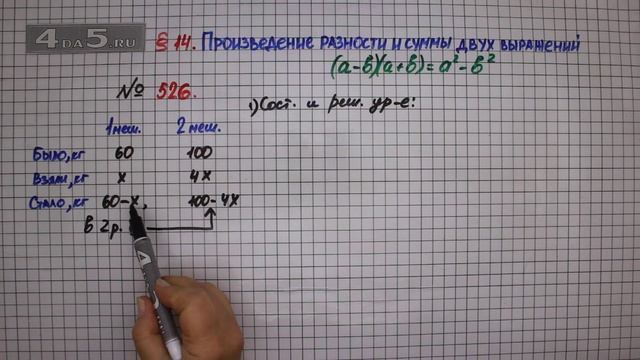 4DA5.RU
§ 14. Произведение разности и суммы двух выражений
(a-b)(a+b)=a²-b²
№ 526.
1) Сост. и реш. ур-е:
1 меш. 2 меш.
Было, кг 60 100
Взяли, кг x 4x
Стало, кг 60-x, 100-4x
в 2 р.